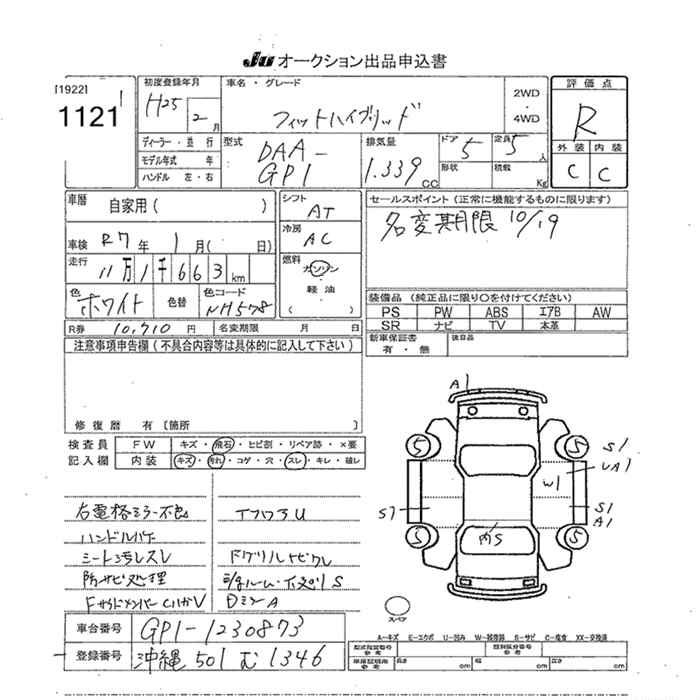 JU オークション出品申込書
[1922]
1121
初度登録年月 H25 2月
車名・グレード フィットハイブリッド
2WD ・ 4WD
評価点 R
外装 内装
C C
ディーラー・並行
モデル年式 年
ハンドル 左・右
型式 DAA-GP1
排気量 1.339 CC
ドア 5 定員 5人
形状 積載 Kg
車歴 自家用 ( )
シフト AT
セールスポイント (正常に機能するものに限ります)
名変期限 10/19
車検 R7年 1月 ( 日)
冷房 AC
走行 11万1千663km
燃料 ガソリン・軽油・( )
色 ホワイト 色替 色コード NH578
装備品 (純正品に限り○を付けてください)
PS PW ABS エアB AW
SR ナビ TV 本革
R券 10,710円 名変期限 月 日
新車保証書 有・無 後日品
注意事項申告欄 (不具合内容等は具体的に記入して下さい)
修復歴 有 [箇所 ]
検査員 FW キズ・飛石・ヒビ割・リペア跡・×要
記入欄 内装 キズ・汚れ・コゲ・穴・スレ・キレ・破レ
右電格ミラー不良
ハンドルハゲ
シート3千レスレ
防サビ処理
FフロアU
Fグリルトビワレ
A1
5 5 S1
UA1
W1
S1 S1
A1
5 5
AS
スペア
A-キズ E-エクボ U-凹み W-補修跡 S-サビ C-腐食 XX-交換済
車台番号 GP1-1230873
登録番号 沖縄 501 む 1346
型式指定番号 参考 類別区分番号 参考
車庫証明用 参考 長さ cm 幅 cm 高さ cm